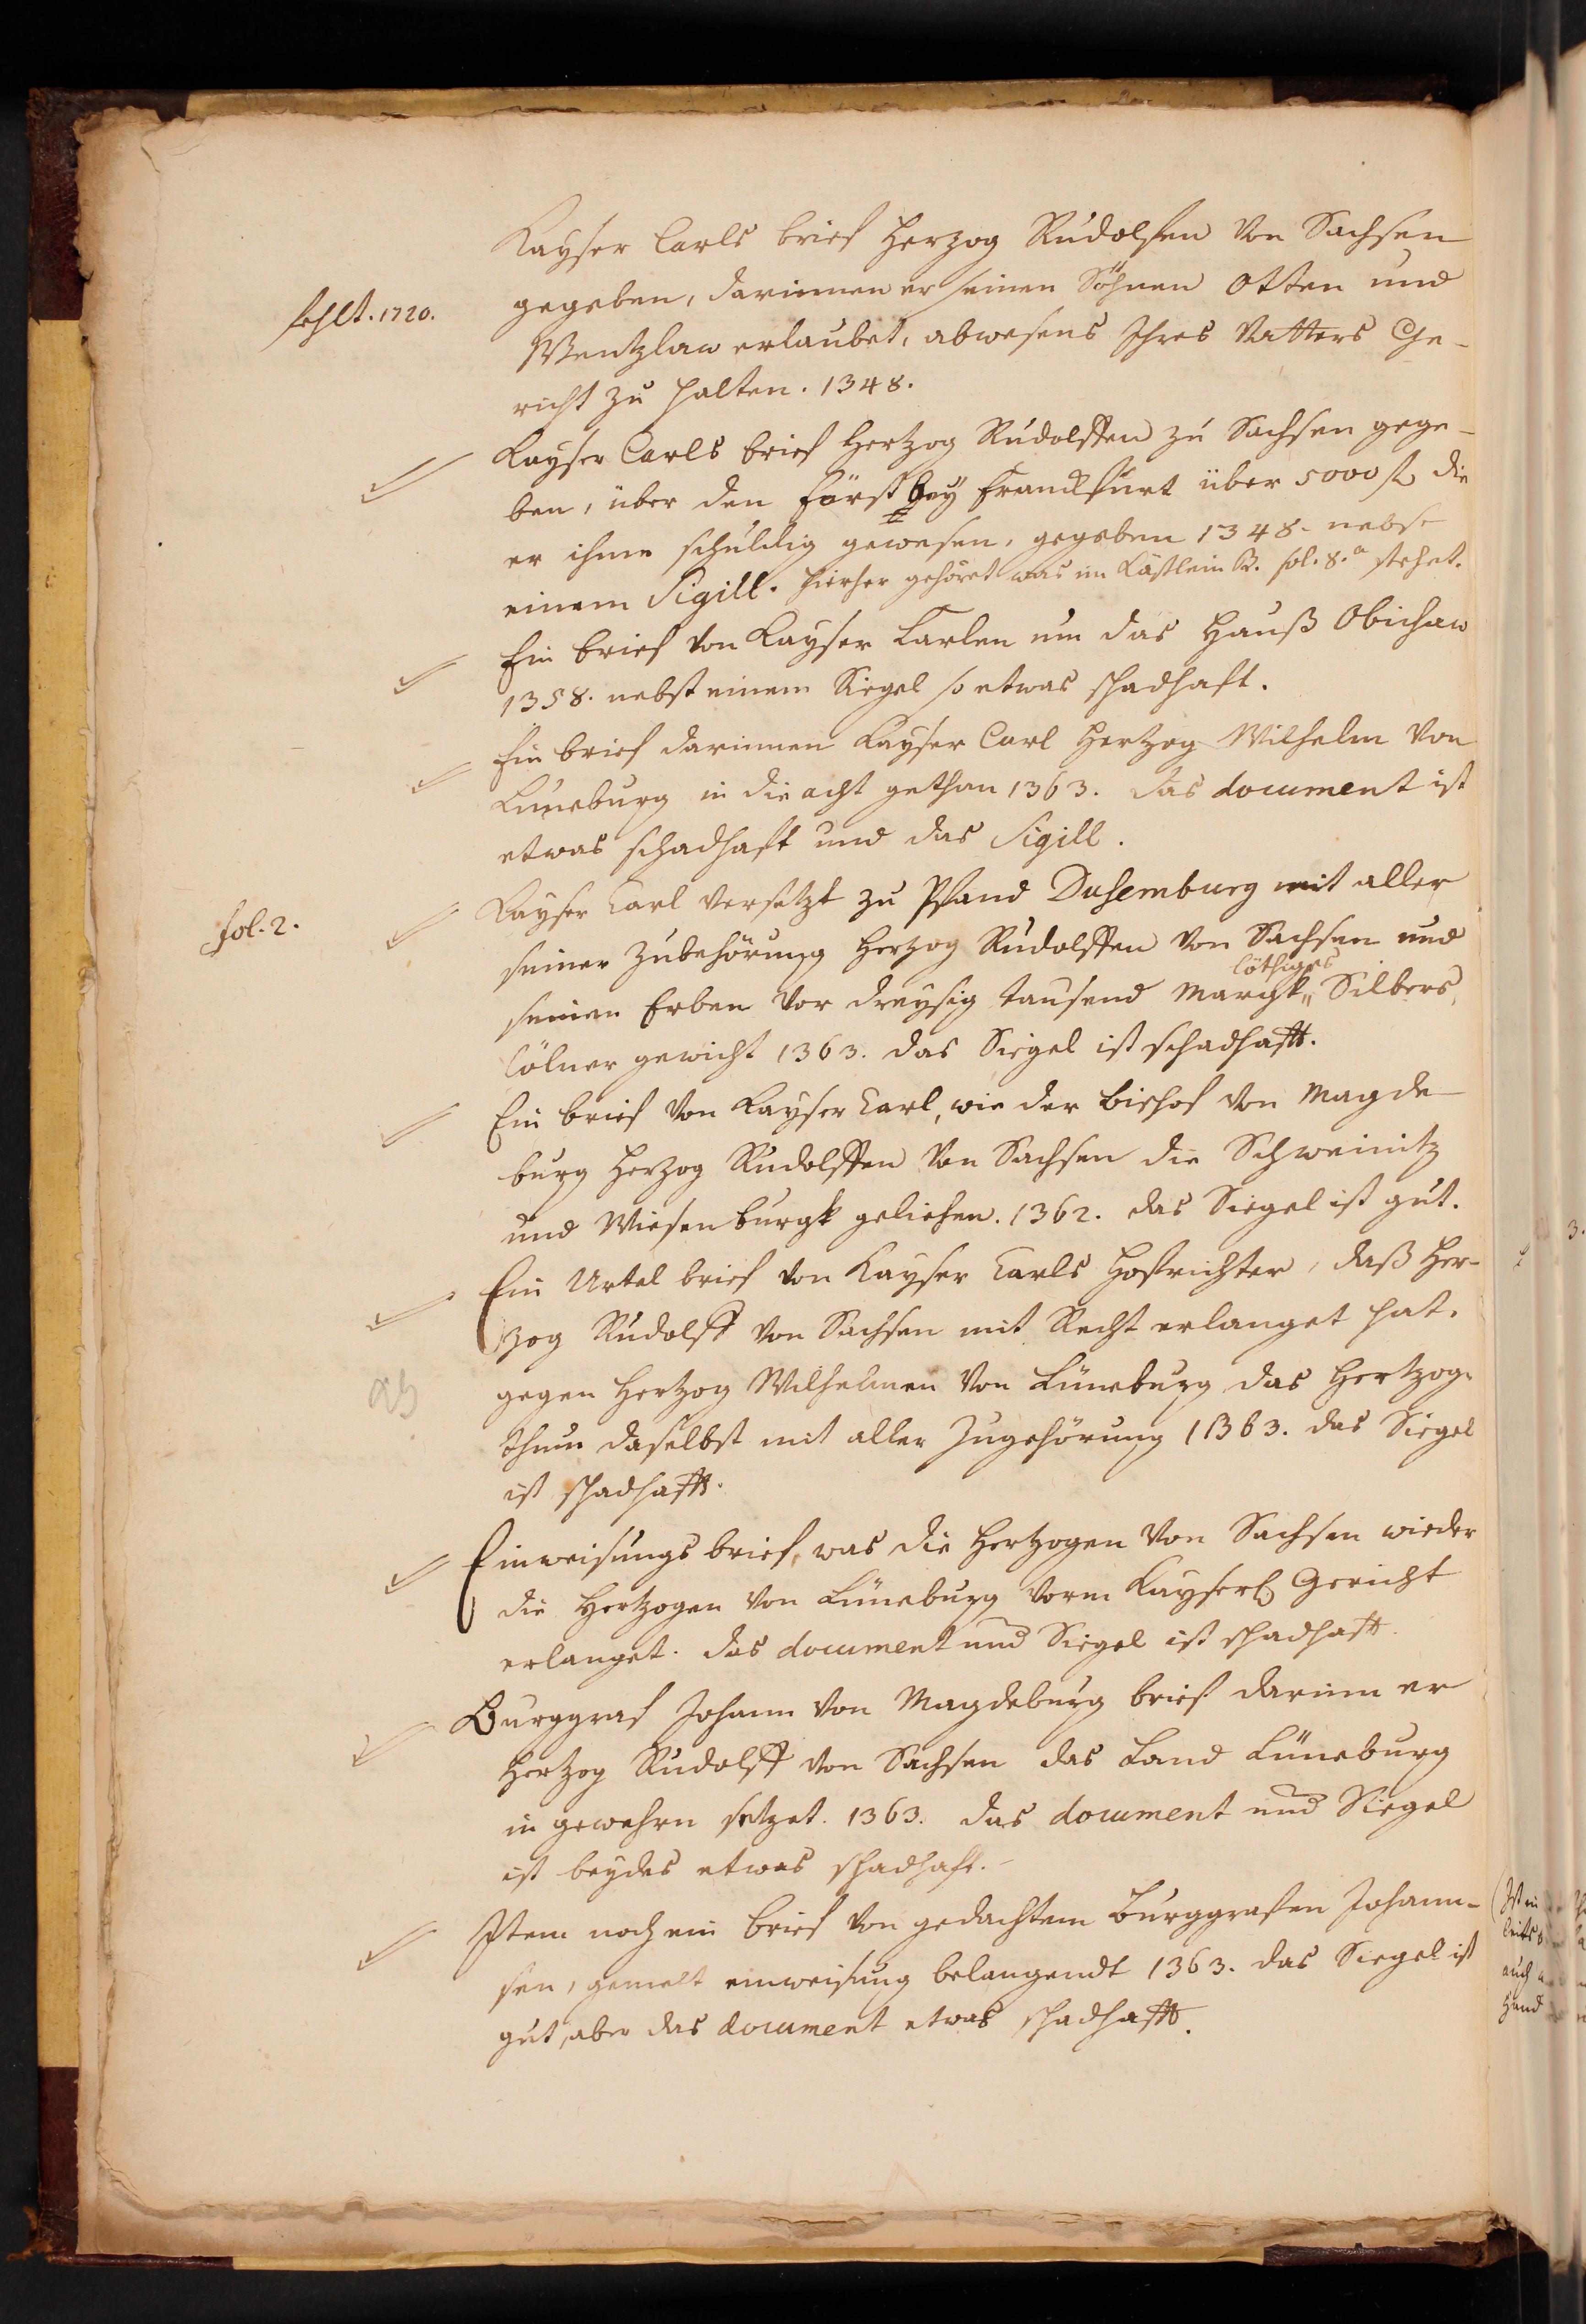 Kayser Carls brief Herzog Rudolfen Von Sachsen
fehlt. 1720.
gegeben, darinnen er seinen Söhnen Otten und
Wentzlaw erlaubet, abwesens Ihres Vatters Ge-
richt zu halten. 1348.
Kayser Carls brief Hertzog Rudolffen zu Sachsen gege-
ben, über den Först bey Franckfurt über 5000 fl. die
er ihme schuldig gewesen, gegeben 1348. nebst
einem Sigill. hierher gehöret was im Kästlein B. fol. 8.a stehet.
Ein brief von Kayser Carlen um das Hauß Obichaw
1358. nebst einem Siegel so etwas schadhaft.
Ein brief darinnen Kayser Carl Hertzog Wilhelm Von
Luneburg in die acht gethan 1363. das document ist
etwas schadhafft und das Sigill.
fol. 2.
Kayser Carl versetzt zu Pfand Dusemburg mit aller
seiner Zubehörung Herzog Rudolffen Von Sachsen und
löthiges
seinen Erben vor dreysig tausend Margk Silbers,
Cölner gewicht 1363. das Siegel ist schadhafft.
Ein brief von Kayser Carl, wie der Bischof von Magde-
burg Herzog Rudolffen Von Sachsen die Schweinitz
und Wiesenburgk geliehen. 1362. das Siegel ist gut.
Ein Urtel brief von Kayser Carls Hofrichter, daß Her-
zog Rudolff von Sachsen mit Recht erlanget hat.
gegen Hertzog Wilhelmen Von Lüneburg das Hertzog-
thum daselbst mit aller Zugehörung 1363. das Siegel
ist schadhafft.
Einweisungs brief, was die Hertzogen Von Sachsen wieder
die Hertzogen von Lüneburg vorm Kayserl. Gericht
erlanget. das document und Siegel ist schadhafft.
Burggraf Johann von Magdeburg brief darinn er
Hertzog Rudolff von Sachsen das Land Lüneburg
in gewehrn setzet. 1363. das document und Siegel
ist beydes etwas schadhaft.
Item noch ein brief von gedachtem Burggrafen Johann-
sen, gemelt einweisung belangendt 1363. das Siegel ist
gut, aber das document etwas schadhafft.